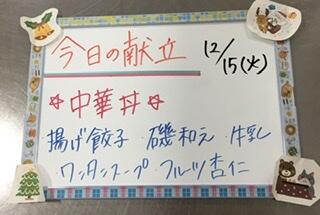 今日の献立 12/15(火)
☆中華丼☆
揚げ餃子・磯和え・牛乳
ワンタンスープ・フルーツ杏仁